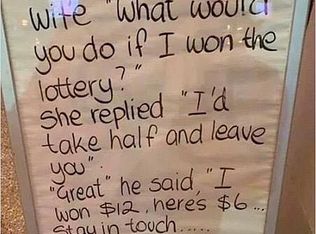 wife "What would
you do if I won the
lottery?"
She replied "I'd
take half and leave
you".
"Great" he said, "I
won $12, heres $6...
Stay in touch.....